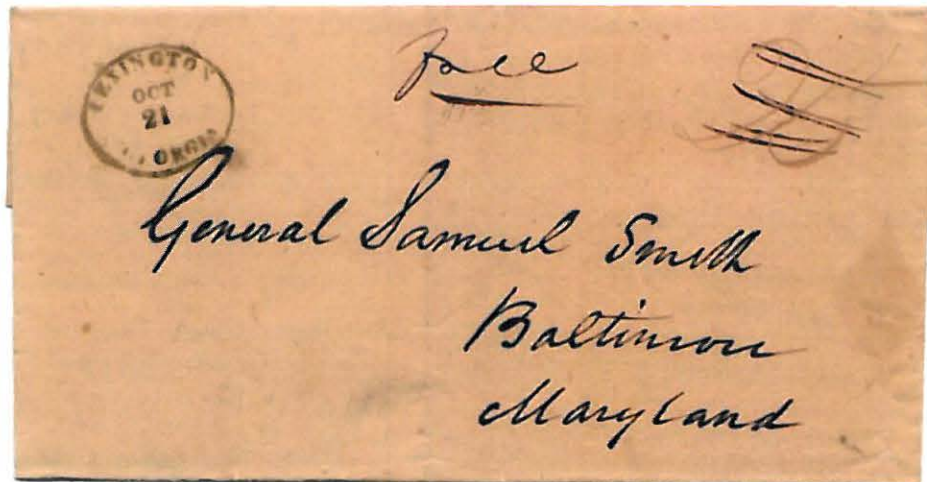 LEXINGTON
OCT
21
GEORGIA
Free
General Samuel Smith
Baltimore
Maryland